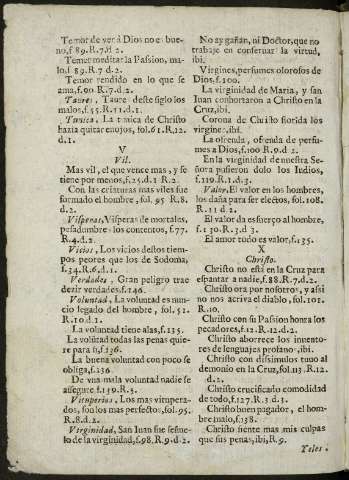 Temor de ver à Dios no es bueno, f 89.R.7.d 2.
Temer meditar la Passion, malo, f 89.R.7 d.2.
Temor rendido en lo que se
ama, f.00 R.7.d.2.
Taures: Taure deste siglo los
malos, f.55.R.11.d.1.
Tunica. La tunica de Christo
hazia quitar enojos, fol.61.R.12.
d.1.
V
Vil.
Mas vil, el que vence mas, y se
tiene por menos, f.25.d.1 R.2.
Con las criaturas mas viles fue
formado el hombre, fol. 95 R.8.
d.2.
Visperas, Visperas de mortales,
pesadumbres los contentos, f.77.
R.4.d.2.
Vicios, Los vicios destos tiempos peores que los de Sodoma,
f.34.R.6.d.1.
Verdades. Gran peligro trae
dezir verdades, f.146.
Voluntad, La voluntad es nuncio legado del hombre, fol. 52.
R.10.d.1.
La voluntad tiene alas, f.135.
La volũtad todas las penas quiere para si, f.136.
La buena voluntad con poco se
obliga, f.236.
De vna mala voluntad nadie se
assegure, f.139.R.3.
Vituperios, Los mas vituperados, son los mas perfectos, fol.95.
R.8.d.2.
Virginidad, San Iuan fue señuelo de la virginidad, f.98.R.9.d.2.
No ay gañan, ni Doctor, que no
trabaje en conseruar la virtud,
ibi.
Virgines, perfumes olorosos de
Dios, f.100.
La virginidad de Maria, y san
Iuan conhortaron a Christo en la
Cruz, ibi.
Corona de Christo florida los
virgines, ibi.
La ofrenda, ofrenda de perfumes a Dios, f.100 R.9.d 2.
En la virginidad de nuestra Señora pusieron dolo los Indios,
f.119.R.1.d.3.
Valor. El valor en los hombres,
los daña para ser electos, fol. 108.
R.11 d.2.
El valor da esfuerço al hombre,
f.130.R.3.d 3.
El amor todo es valor, f.135.
X
Christo.
Christo no està en la Cruz para
espantar a nadie, f.88.R.7.d.2.
Christo ora por nosotros, y assi
no nos acriua el diablo, fol.101.
R.10.
Christo con su Passion honra los
pecadores, f.12.R.12.d.2.
Christo aborrece los inuentores de lenguajes profano, ibi.
Christo con dissimulos tuuo al
demonio en la Cruz, fol.113.R.12.
d.2.
Christo crucificado comodidad
de todo, f.127.R.3 d.3.
Christo buen pagador, el hombre malo, f.138.
Christo siente mas mis culpas
que sus penas, ibi, R.9.
Yeles.